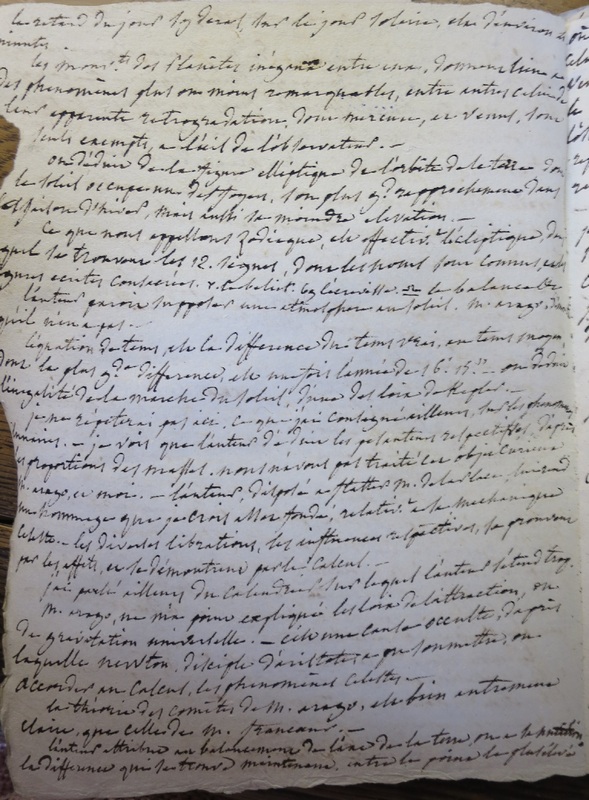 le retard du jour syderal, sur le jour solaire, est d'environ 4
minutes.
les mouv.ts des planètes inégaux entre eux, donnent lieu a
des phenomènes plus ou moins remarquables, entre autres celui de
leur apparente retrogradation, dont mercure, et venus, sont
seuls exempts, a l'œil de l'observateur. —
on déduit de la figure elliptique de l'orbite de la terre dont
le soleil occupe un des foyers, son plus gd rapprochement dans
la saison d'hiver, mais aussi sa moindre elevation. —
Ce que nous appellons Zodiaque, est effectiv.t l'écliptique, dans
quel se trouvent les 12. signes, dont les noms sont connus, et les
signes ecrits consacrés. ♈ le belier. 69 l'ecrevisse. ♎ la balance &c
l'auteur paroit supposer une atmosphere au soleil. m. arago, dit
qu'il n'en a pas. —
l'équation du tems, est la difference du tems vrai, au tems moyen
dont la plus gde difference, est une fois l'année de 16' 15" — on déduit
l'inégalité de la marche du soleil, d'une des loix de Kepler. —
je ne répéterai pas ici, ce que j'ai consigné ailleurs, sur les phenom.
lunaires. — je vois que l'auteur déduit les pesanteurs respectives, d'après
les proportions des masses. nous n'avons pas traité cet objet curieux
m. arago, et moi. — l'auteur, disposé a flatter m. de la place, lui rend
un hommage que je crois assez fondé, relativ.t a la mechanique
celeste — les diverses librations, les influences respectives, se prouvent
par les effets, et se démontrent par le calcul. —
j'ai parlé ailleurs du calendrier sur lequel l'auteur s'étend trop.
m. arago, ne m'a point expliqué les loix de l'attraction, ou
de gravitation universelle. — c'est une cause occulte, d'après
laquelle newton, disciple d'aristote, a pu soumettre, ou
accorder au calcul, les phenomènes celestes. —
la théorie des comètes de m. arago, est bien autrement
claire, que celle de m. francœur. —
l'auteur attribue au balancement de l'axe de la terre, ou a la nutation
la difference qui se trouve maintenant, entre le point le plus élevé